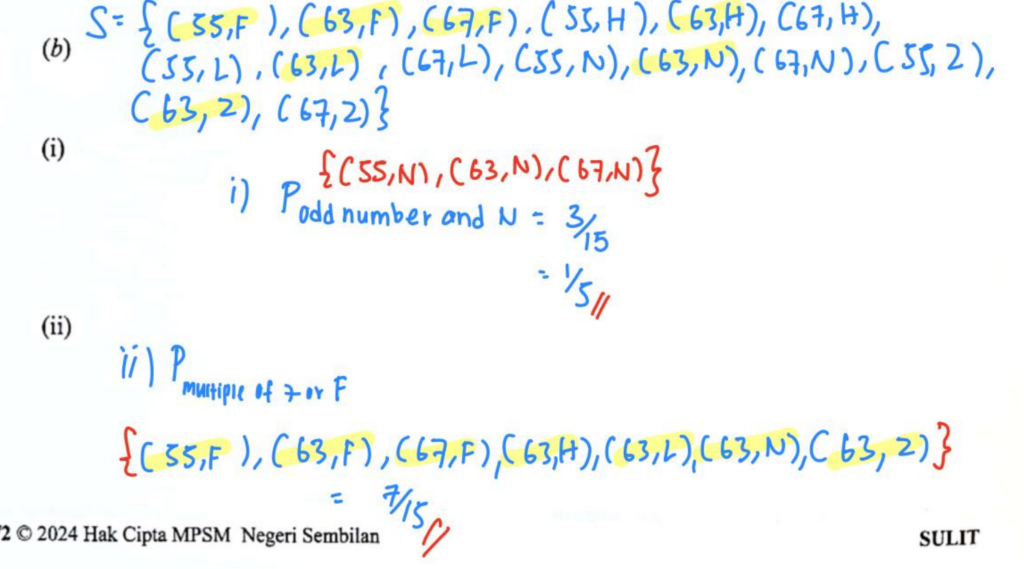 S = {(55,F), (63,F), (67,F), (55,H), (63,H), (67,H),
(b)
(55,L), (63,L), (67,L), (55,N), (63,N), (67,N), (55,2),
(63,2), (67,2)}
(i)
{(55,N), (63,N), (67,N)}
i) P odd number and N = 3/15
= 1/5 //
(ii)
ii) P multiple of 7 or F
{(55,F), (63,F), (67,F), (63,H), (63,L), (63,N), (63,2)}
= 7/15 //
2 © 2024 Hak Cipta MPSM Negeri Sembilan
SULIT